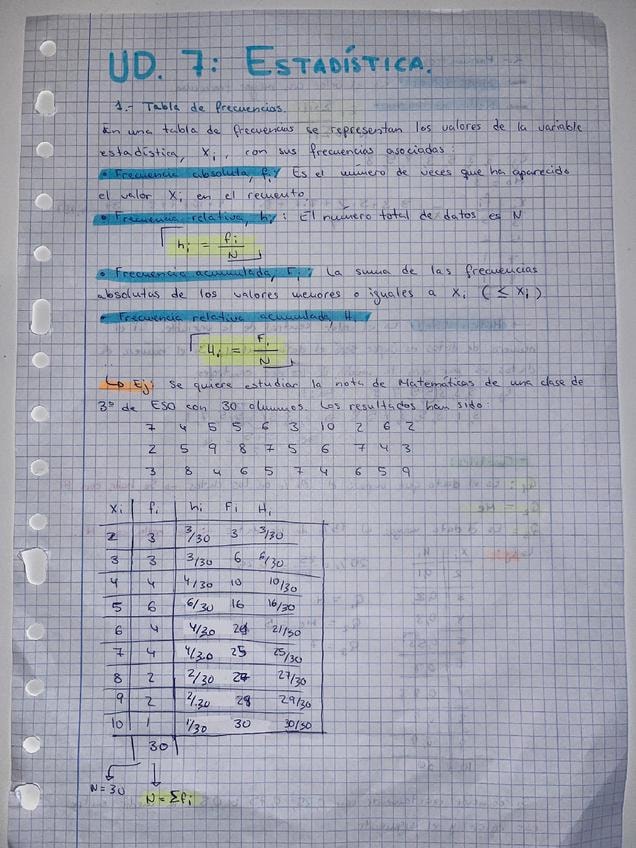 UD. 7: ESTADÍSTICA.
1.- Tabla de frecuencias.
En una tabla de frecuencias se representan los valores de la variable
estadística, Xi, con sus frecuencias asociadas:
• Frecuencia absoluta, fi: Es el numero de veces que ha aparecido
el valor Xi en el recuento.
• Frecuencia relativa, hi: El número total de datos es N
hi = fi/N
• Frecuencia acumulada, Fi: La suma de las frecuencias
absolutas de los valores menores o iguales a Xi (≤ Xi)
• Frecuencia relativa acumulada, Hi
Hi = Fi/N
↳ Ej: se quiere estudiar la nota de Matemáticas de una clase de
3º de ESO con 30 alumnos. Los resultados han sido:
7 4 5 5 6 3 10 2 6 2
2 5 9 8 7 5 6 7 4 3
3 8 4 6 5 7 4 6 5 9
Xi fi hi Fi Hi
2 3 3/30 3 3/30
3 3 3/30 6 6/30
4 4 4/30 10 10/30
5 6 6/30 16 16/30
6 4 4/30 21/30
7 4 4/30 25 25/30
8 2 2/30 27/30
9 2 2/30 29/30
10 1 1/30 30 30/30
30
N=30
N=Σfi